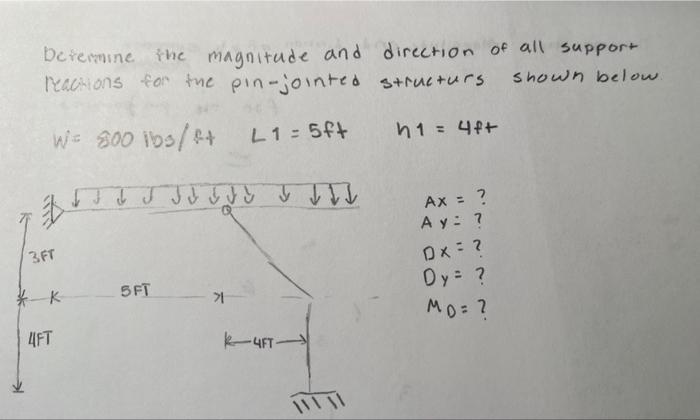 Determine the magnitude and direction of all support
reactions for the pin-jointed structurs shown below
W= 800 lbs/ft L1 = 5ft h1 = 4ft
Ax = ?
Ay = ?
Dx = ?
Dy = ?
MD = ?
3FT
5FT
4FT
4FT